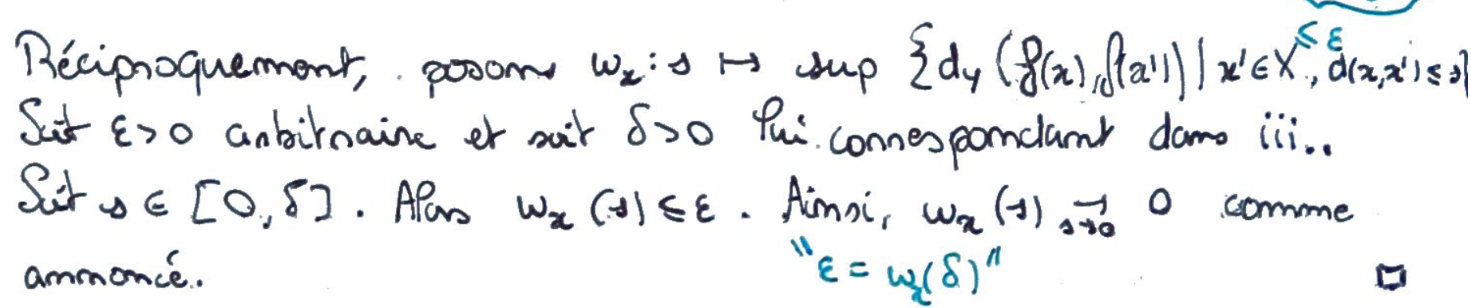 Réciproquement, posons ω_x : s ↦ sup {d_Y (f(x), f(x')) | x' ∈ X, d(x,x') ≤ s}
≤ ε
Soit ε > 0 arbitraire et soit δ > 0 lui correspondant dans iii..
Soit s ∈ [0, δ]. Alors ω_x (s) ≤ ε. Ainsi, ω_x (s) →_{s→0} 0 comme
annoncé.
"ε = ω_x(δ)" □